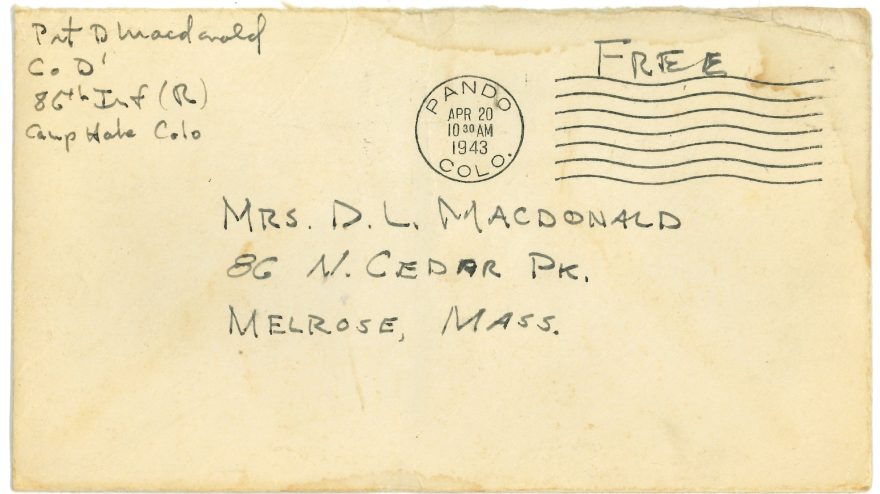 Pvt D Macdonald
Co D'
86th Inf (R)
Camp Hale Colo
FREE
PANDO
APR 20
10 30 AM
1943
COLO.
MRS. D. L. MACDONALD
86 N. CEDAR PK.
MELROSE, MASS.